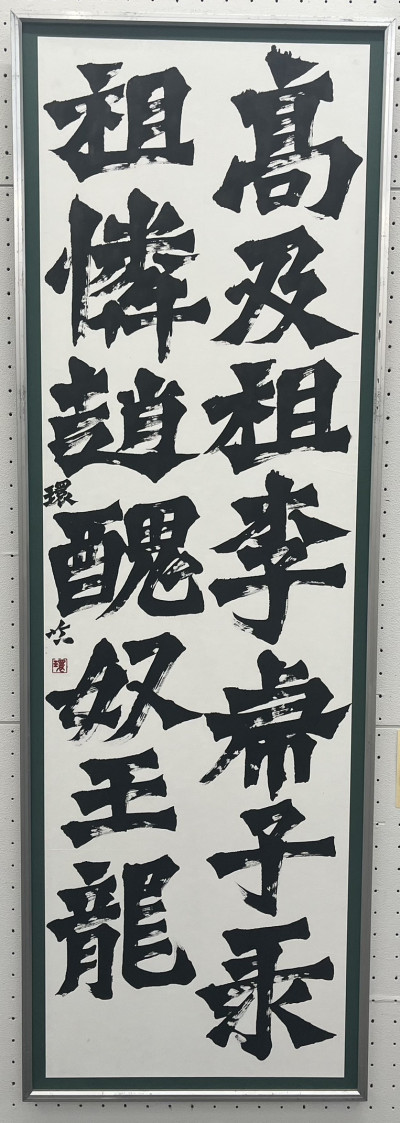 高及祖李虎子
祖憐趙醜奴王龍
環